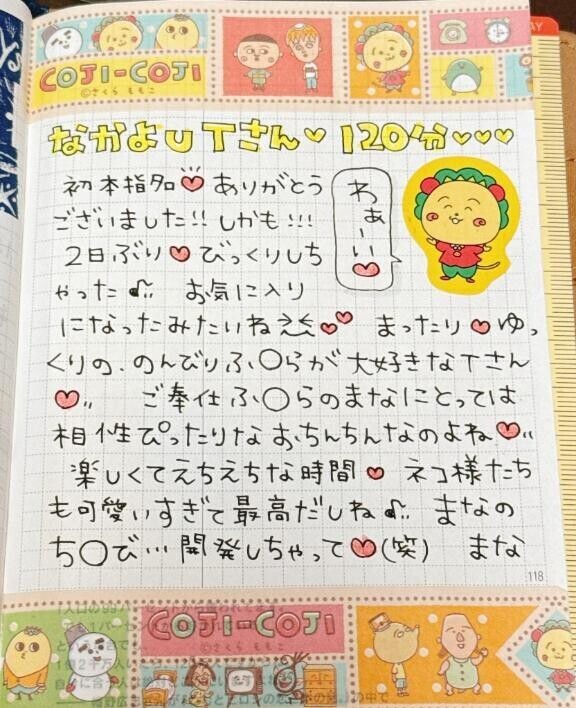 COJI-COJI
©さくら ももこ
なかよU Tさん♡ 120分♡♡♡
初本指名♡ありがとう
ございました!! しかも!!!
2日ぶり♡びっくりしち
ゃった♪ お気に入り
わぁーい♡
になったみたいね ♡♡ まったり♡ゆっ
くりの、のんびりふ〇らが大好きなTさん
♡ ご奉仕ふ〇らのまなにとっては
相性ぴったりなおちんちんなのよね♡
楽しくてえちえちな時間♡ ネコ様たち
も可愛いすぎて最高だしね♪ まなの
ち〇び…開発しちゃって♡(笑) まな
118
COJI-COJI
©さくら ももこ